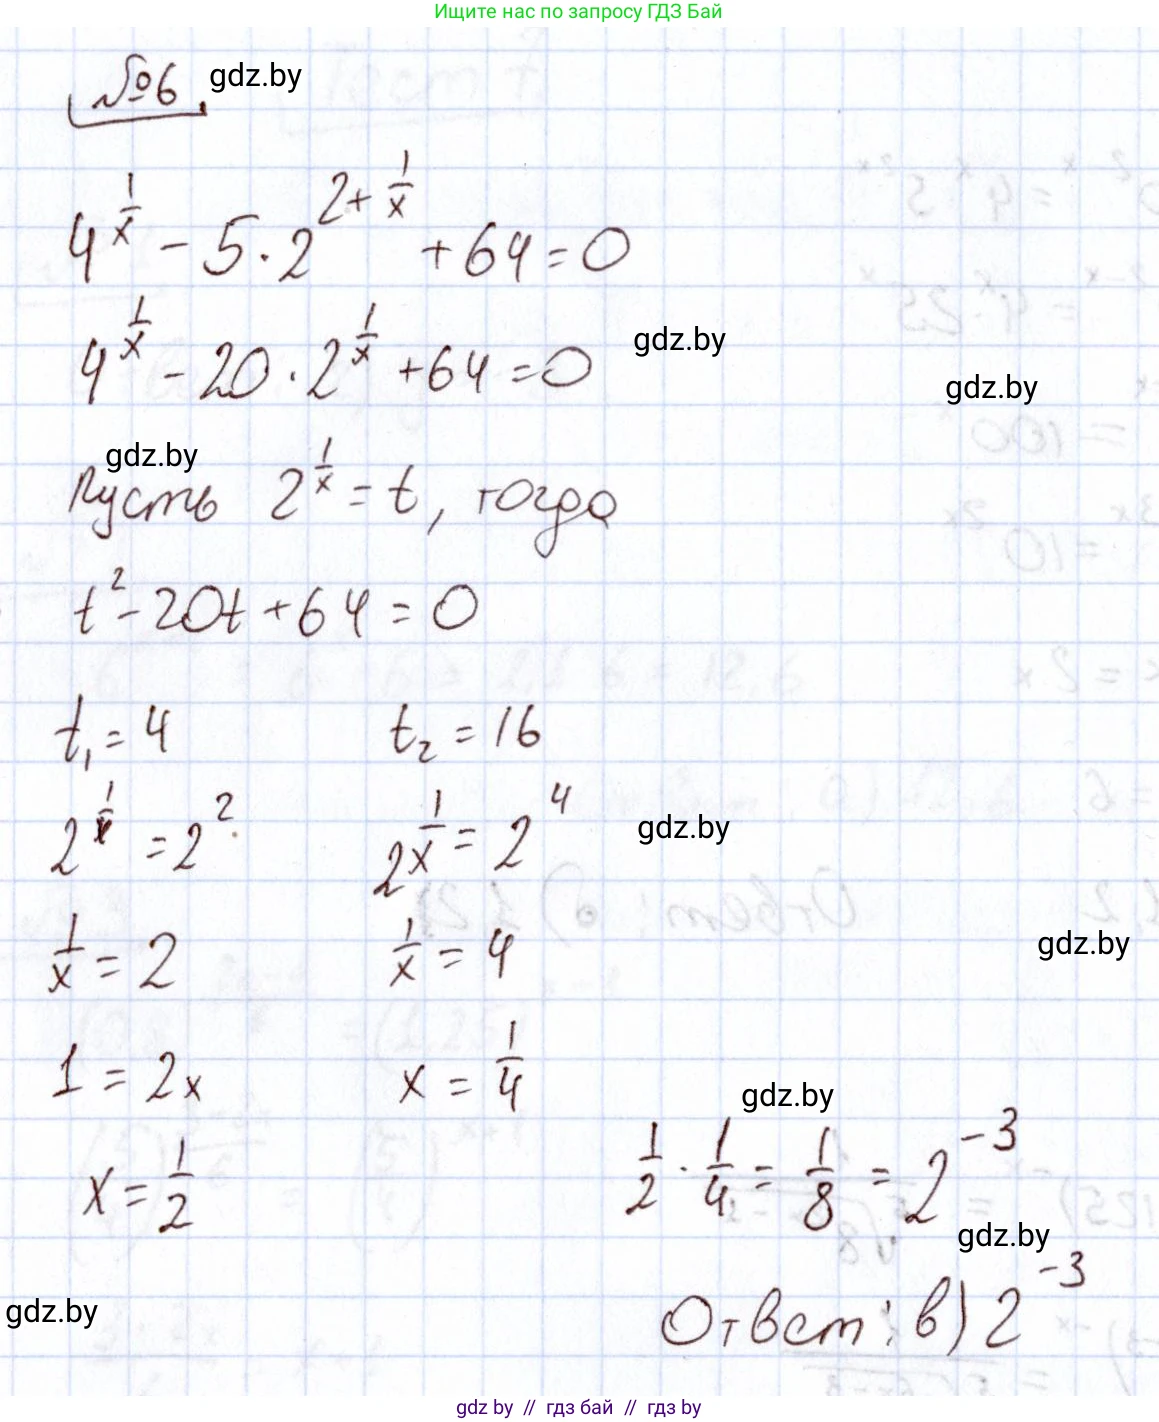 Ищите нас по запросу ГДЗ Бай
№6 gdz.by
4^(1/x) - 5·2^(2+1/x) + 64 = 0
4^(1/x) - 20·2^(1/x) + 64 = 0 gdz.by
gdz.by
gdz.by
Пусть 2^(1/x) = t, тогда
t² - 20t + 64 = 0
t₁ = 4 t₂ = 16
2^(1/x) = 2² 2^(1/x) = 2⁴ gdz.by
1/x = 2 1/x = 4 gdz.by
1 = 2x x = 1/4 gdz.by
x = 1/2 1/2 · 1/4 = 1/8 = 2⁻³
gdz.by
gdz.by Ответ: в) 2⁻³
gdz.by // гдз бай // гдз by